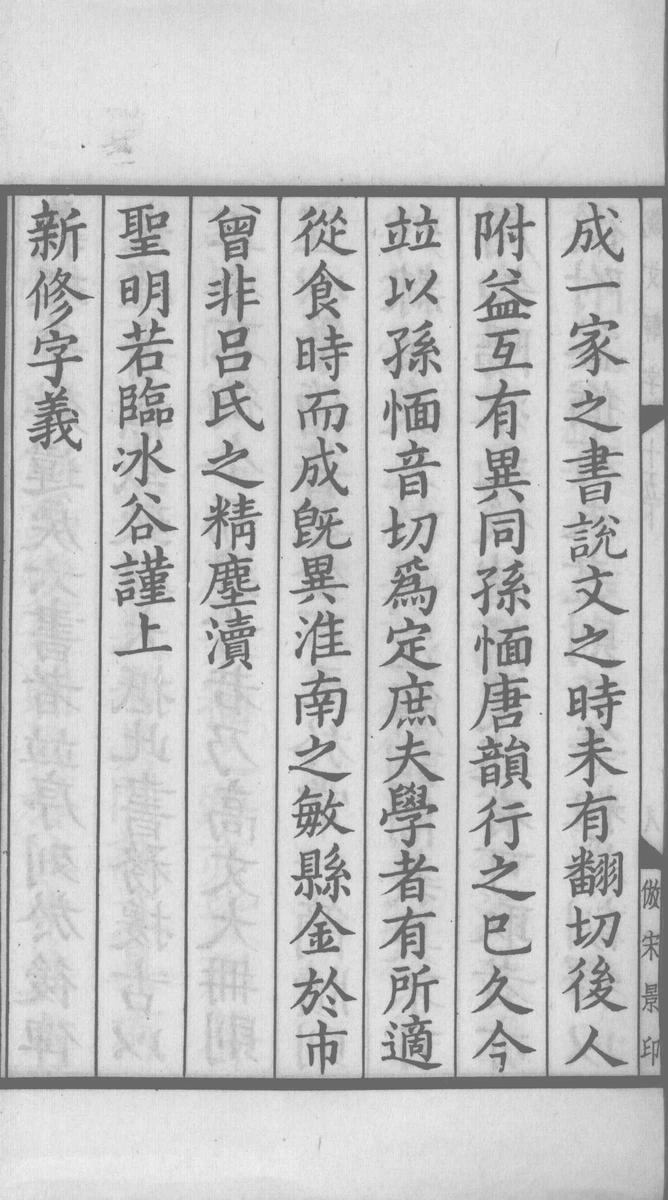 成一家之書說文之時未有翻切後人
附益互有異同孫愐唐韻行之巳久今
竝以孫愐音切爲定庶夫學者有所適
從食時而成旣異淮南之敏縣金於市
曾非呂氏之精塵瀆
聖明若臨冰谷謹上
新修字義
倣宋景印